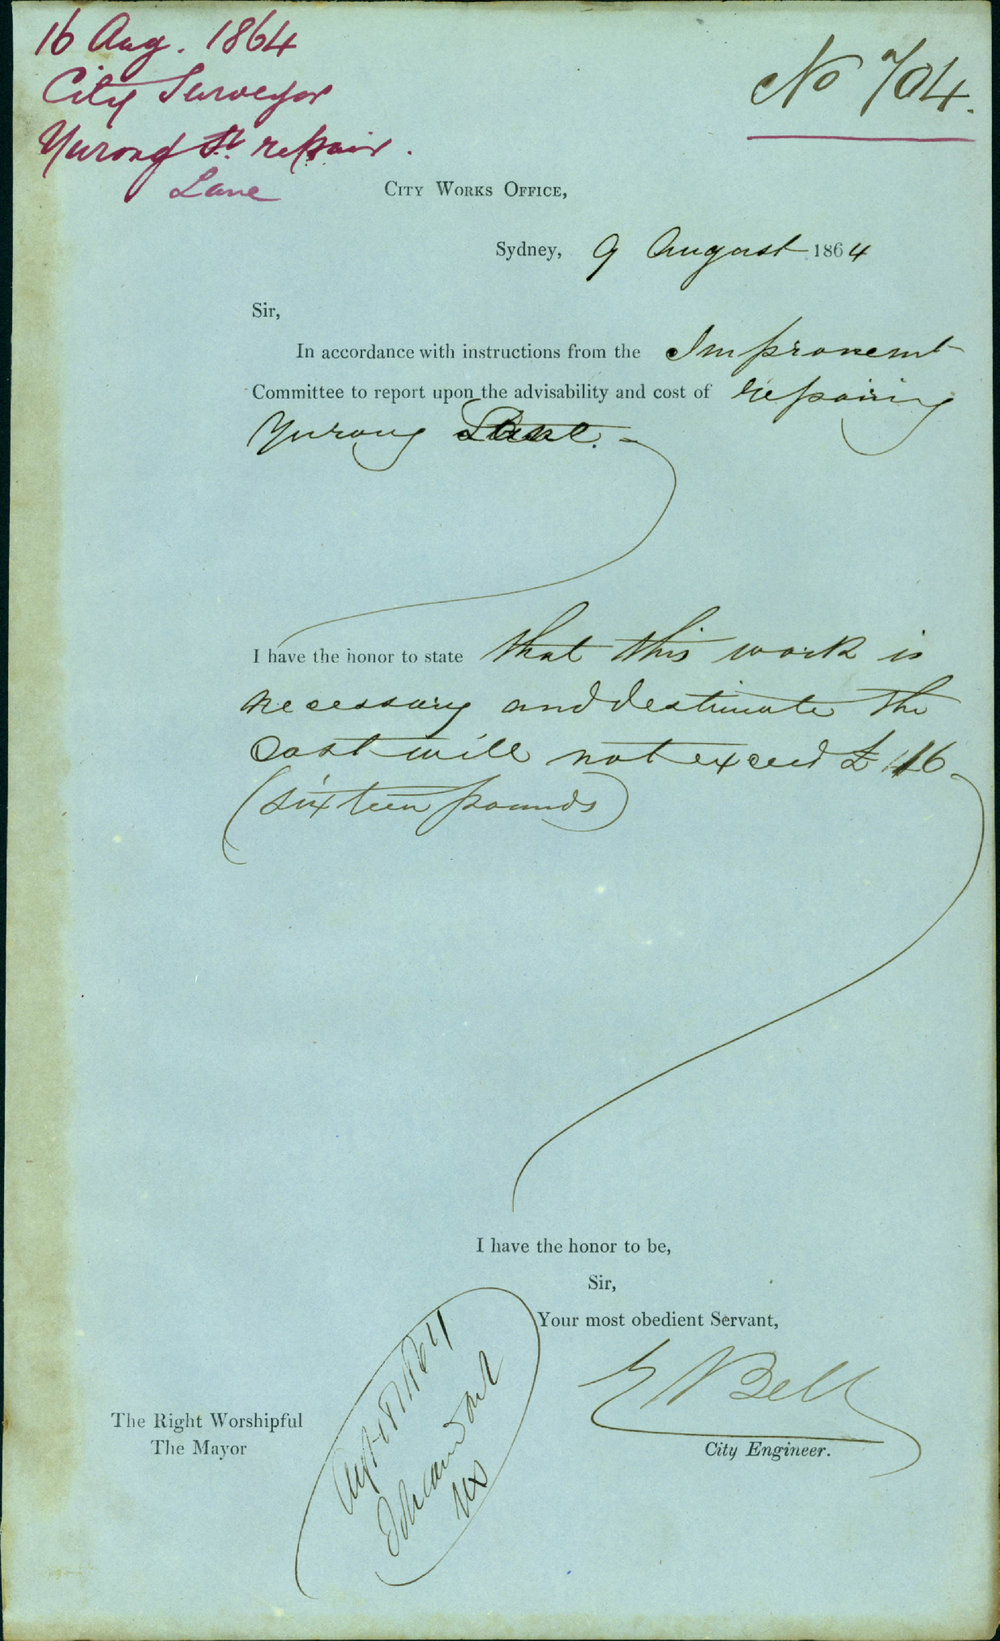 16 Aug. 1864
City Surveyor
Yurong St. repair.
Lane
No 704.
CITY WORKS OFFICE,
Sydney, 9 August 1864
Sir,
In accordance with instructions from the Improvemt
Committee to report upon the advisability and cost of repairing
Yurong Lane.
I have the honor to state that this work is
necessary and I estimate the
cost will not exceed £16
(sixteen pounds)
I have the honor to be,
Sir,
Your most obedient Servant,
E Bell
City Engineer.
The Right Worshipful
The Mayor